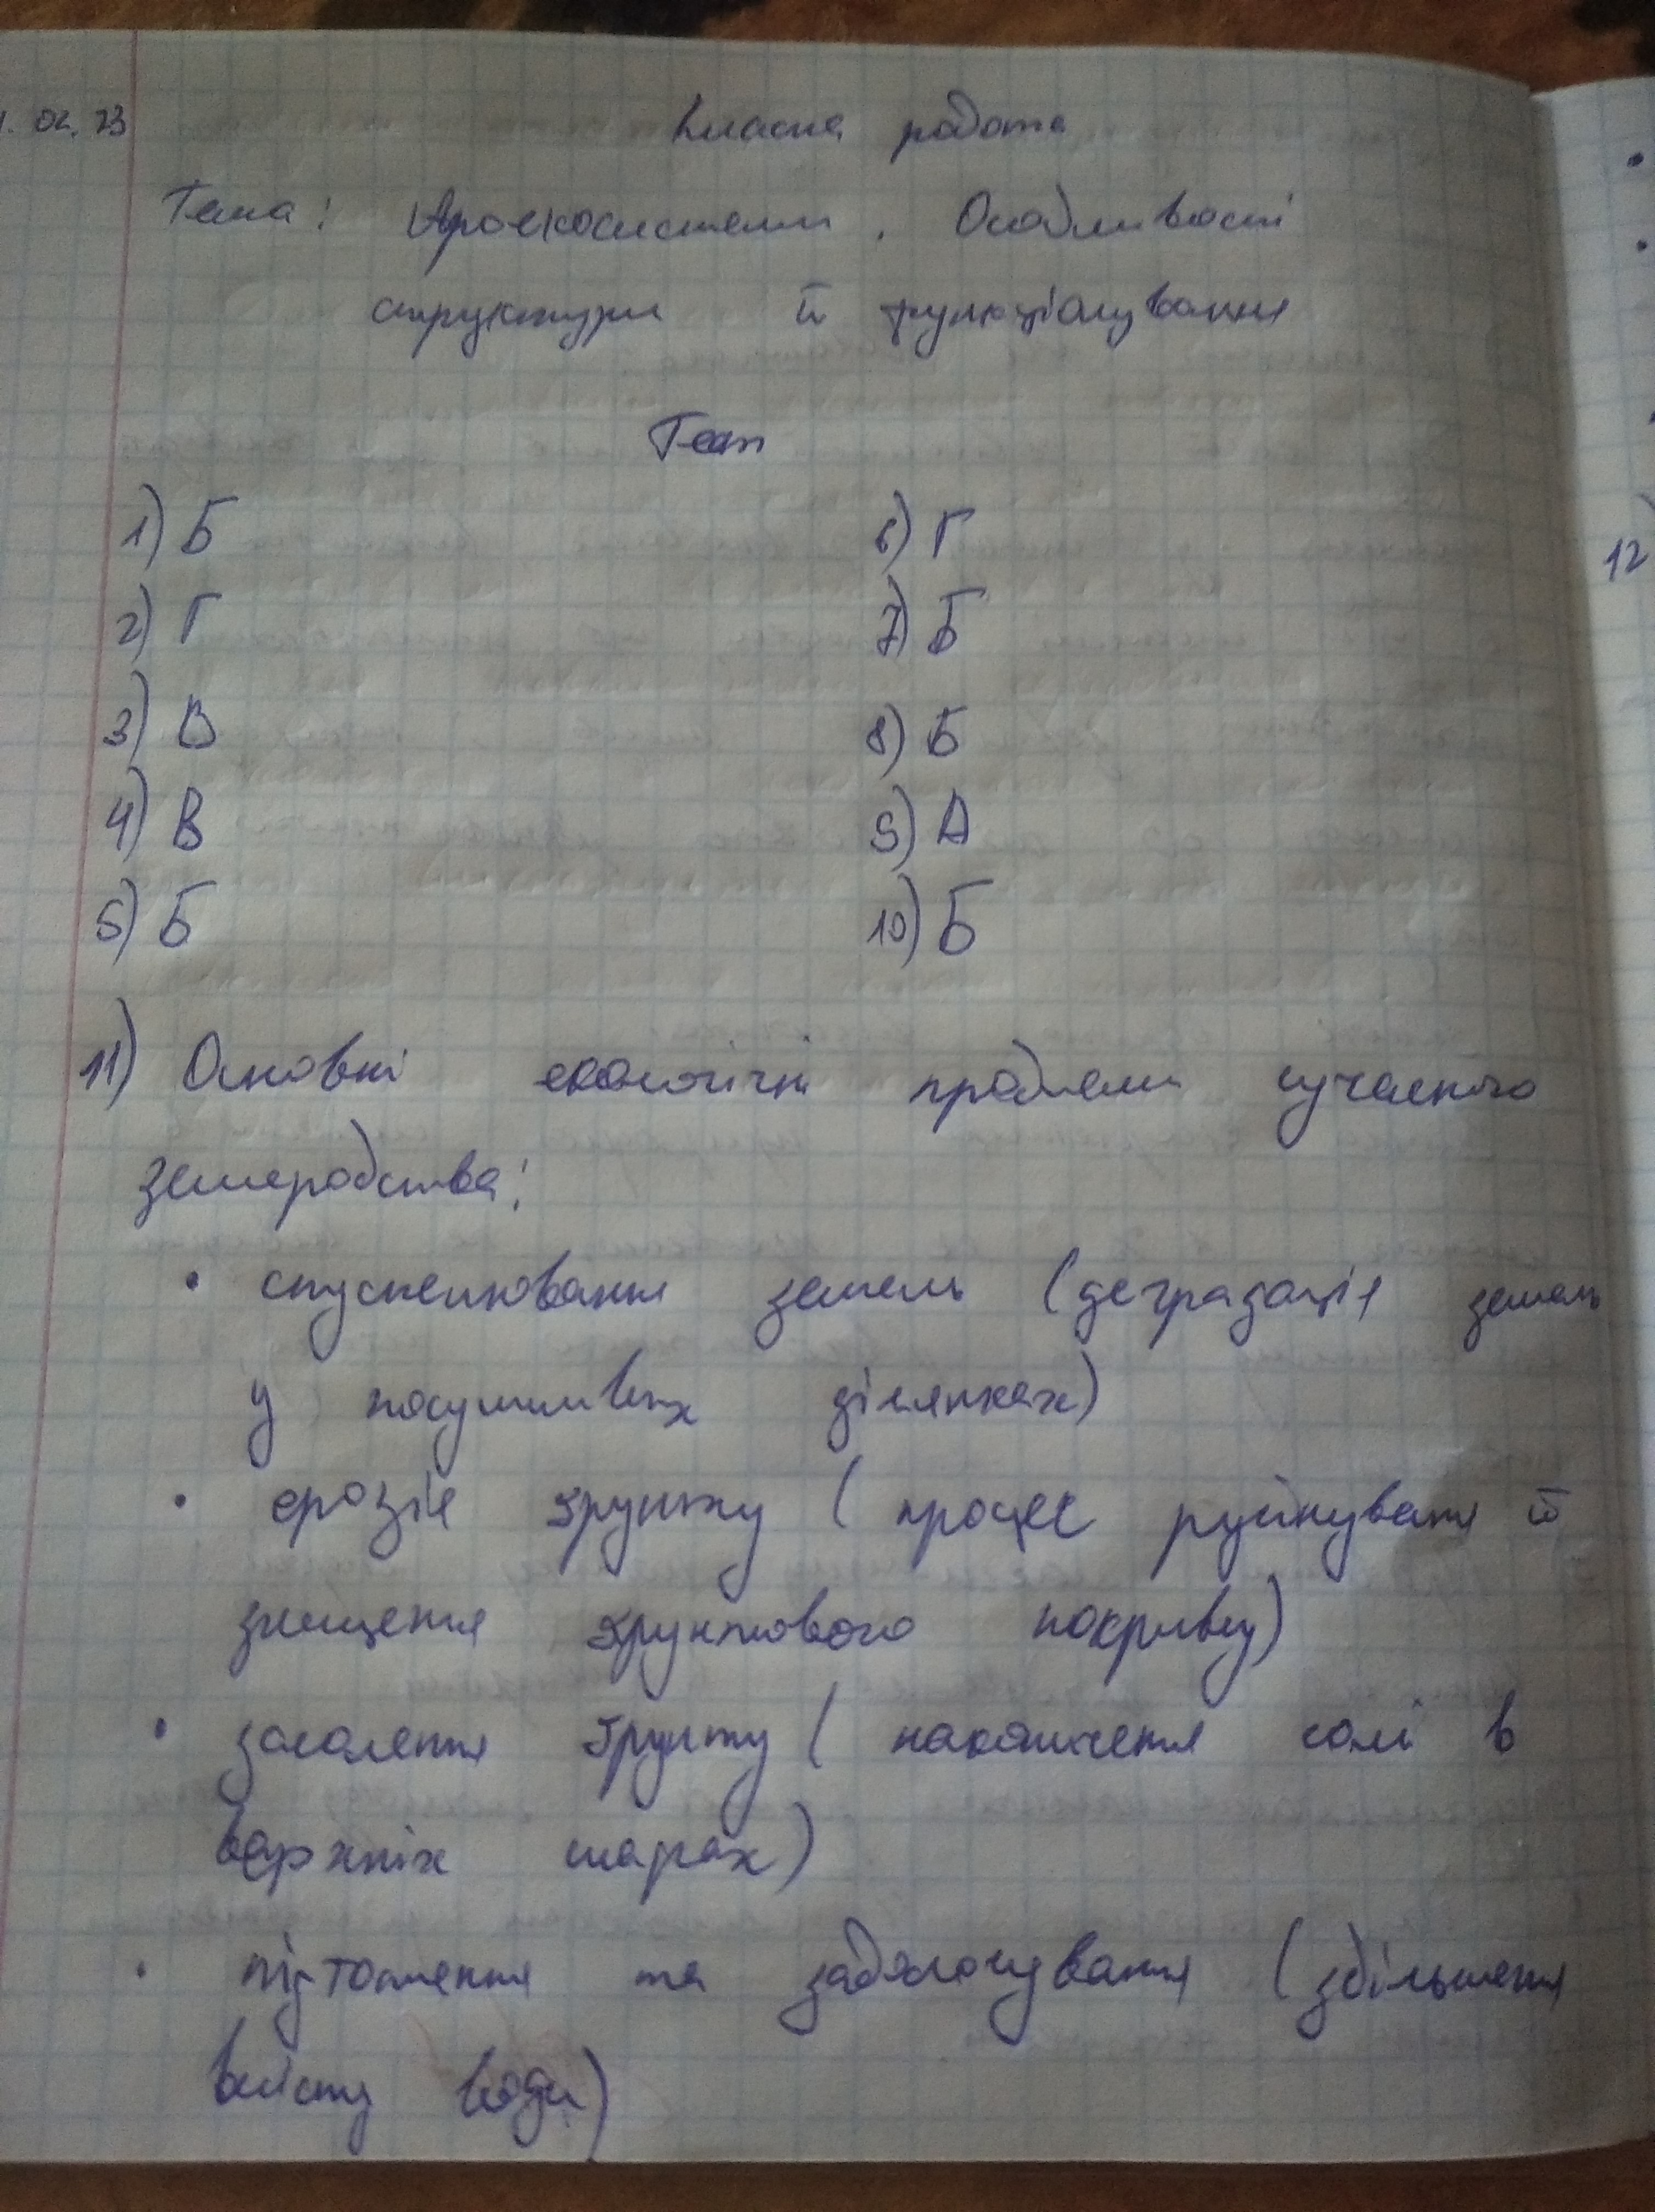 . 02. 23
Класна робота
Тема: Агроекосистеми. Особливості
структури й функціонування
Тест
1) Б
6) Г
2) Г
7) Б
3) В
8) Б
4) В
9) А
5) Б
10) Б
12)
11) Основні екологічні проблеми сучасного
землеробства:
• спустелювання земель (деградація земель
у посушливих ділянках)
• ерозія ґрунту (процес руйнування й
знищення ґрунтового покриву)
• засолення ґрунту (накопичення солі в
верхніх шарах)
• підтоплення та заболочування (збільшення
вмісту води)